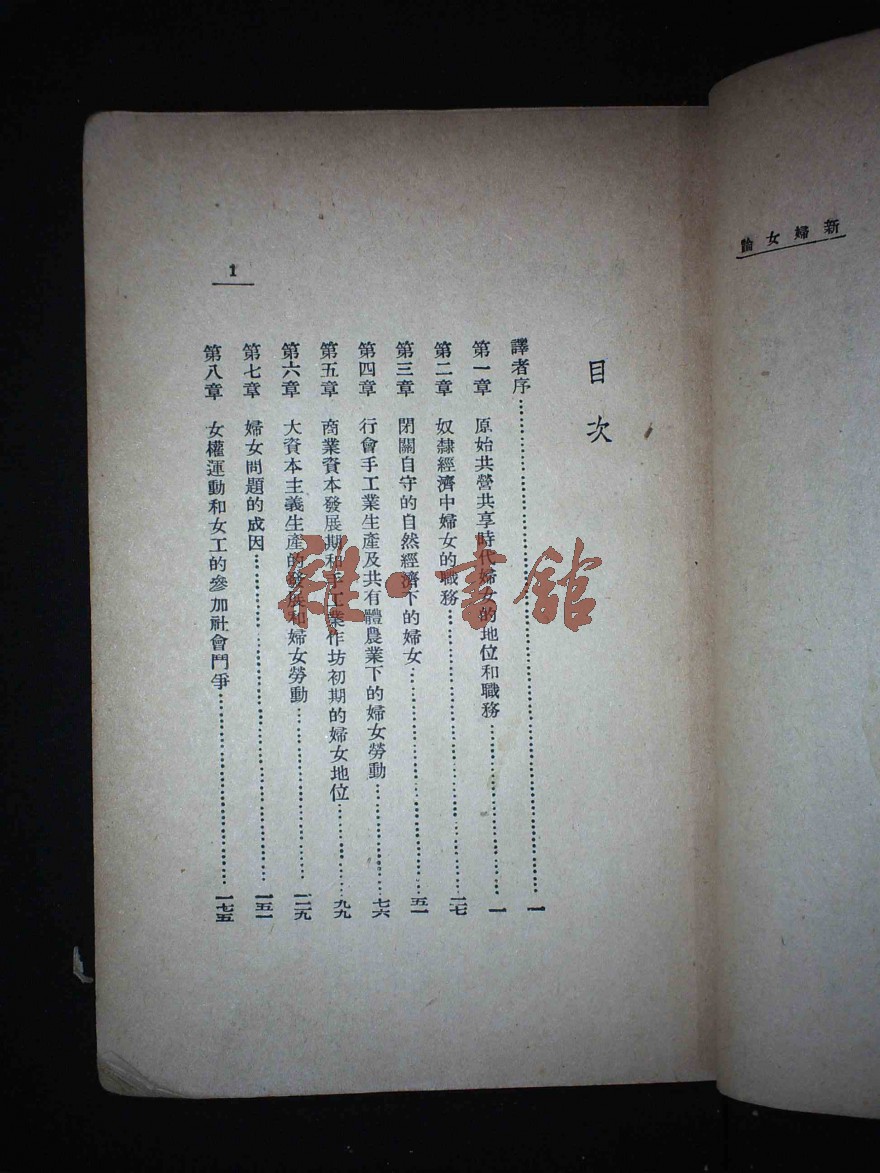 新婦女論
目次
譯者序……………………一
第一章 原始共營共享時代婦女的地位和職務……………………一
第二章 奴隸經濟中婦女的職務……………………二七
第三章 閉關自守的自然經濟下的婦女……………………五一
第四章 行會手工業生產及共有體農業下的婦女勞動……………………七六
第五章 商業資本發展期和手工業作坊初期的婦女地位……………………九九
第六章 大資本主義生產的發展和婦女勞動……………………一二九
第七章 婦女問題的成因……………………一五一
第八章 女權運動和女工的參加社會鬥爭……………………一七五
1
雜·書館